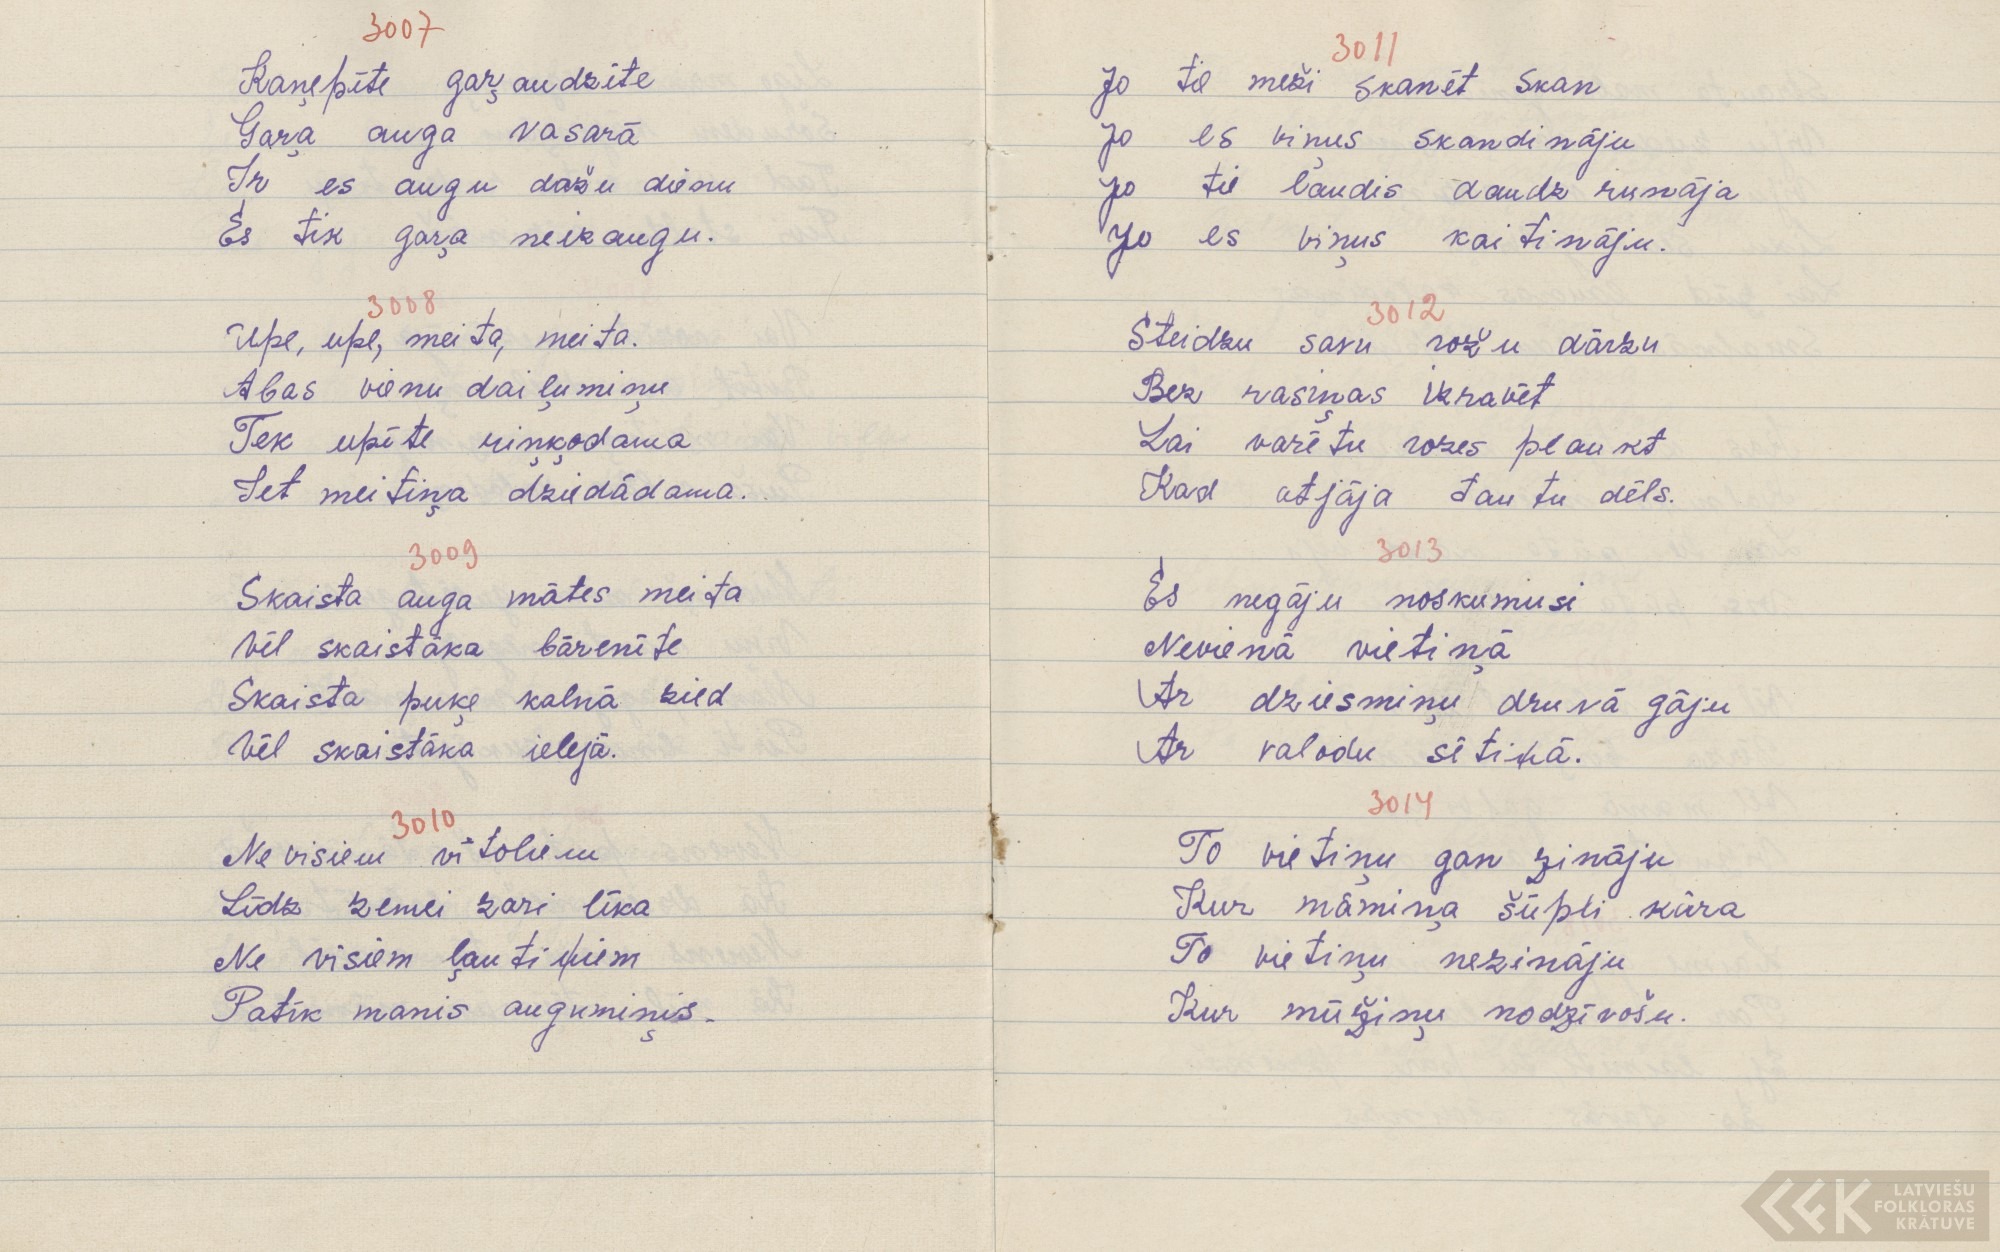 3007
Kaņepīte gaŗaudzīte
Gaŗa auga vasarā
Ir es augu dažu dienu
Es tik gaŗa neizaugu.
3008
Upe, upe, meita, meita.
Abas vienu daiļumiņu
Tek upīte riņķodama
Iet meitiņa dziedādama.
3009
Skaista auga mātes meita
Vēl skaistāka bārenīte
Skaista puķe kalnā zied
Vēl skaistāka ielejā.
3010
Ne visiem vītoliem
Līdz zemei zari līka
Ne visiem ļautiņiem
Patīk manis augumiņis.
3011
Jo tie meži skanēt skan
Jo es viņus skandināju
Jo tie ļaudis daudz runāja
Jo es viņus kaitināju.
3012
Steidzu savu rožu dārzu
Bez rasiņas izravēt
Lai varētu rozes plaukt
Kad atjāja tautu dēls.
3013
Es negāju noskumusi
Nevienā vietiņā
Ar dziesmiņu druvā gāju
Ar valodu sētiņā.
3014
To vietiņu gan zināju
Kur māmiņa šūpli kāra
To vietiņu nezināju
Kur mūžiņu nodzīvošu.
LATVIEŠU
FOLKLORAS
KRĀTUVE